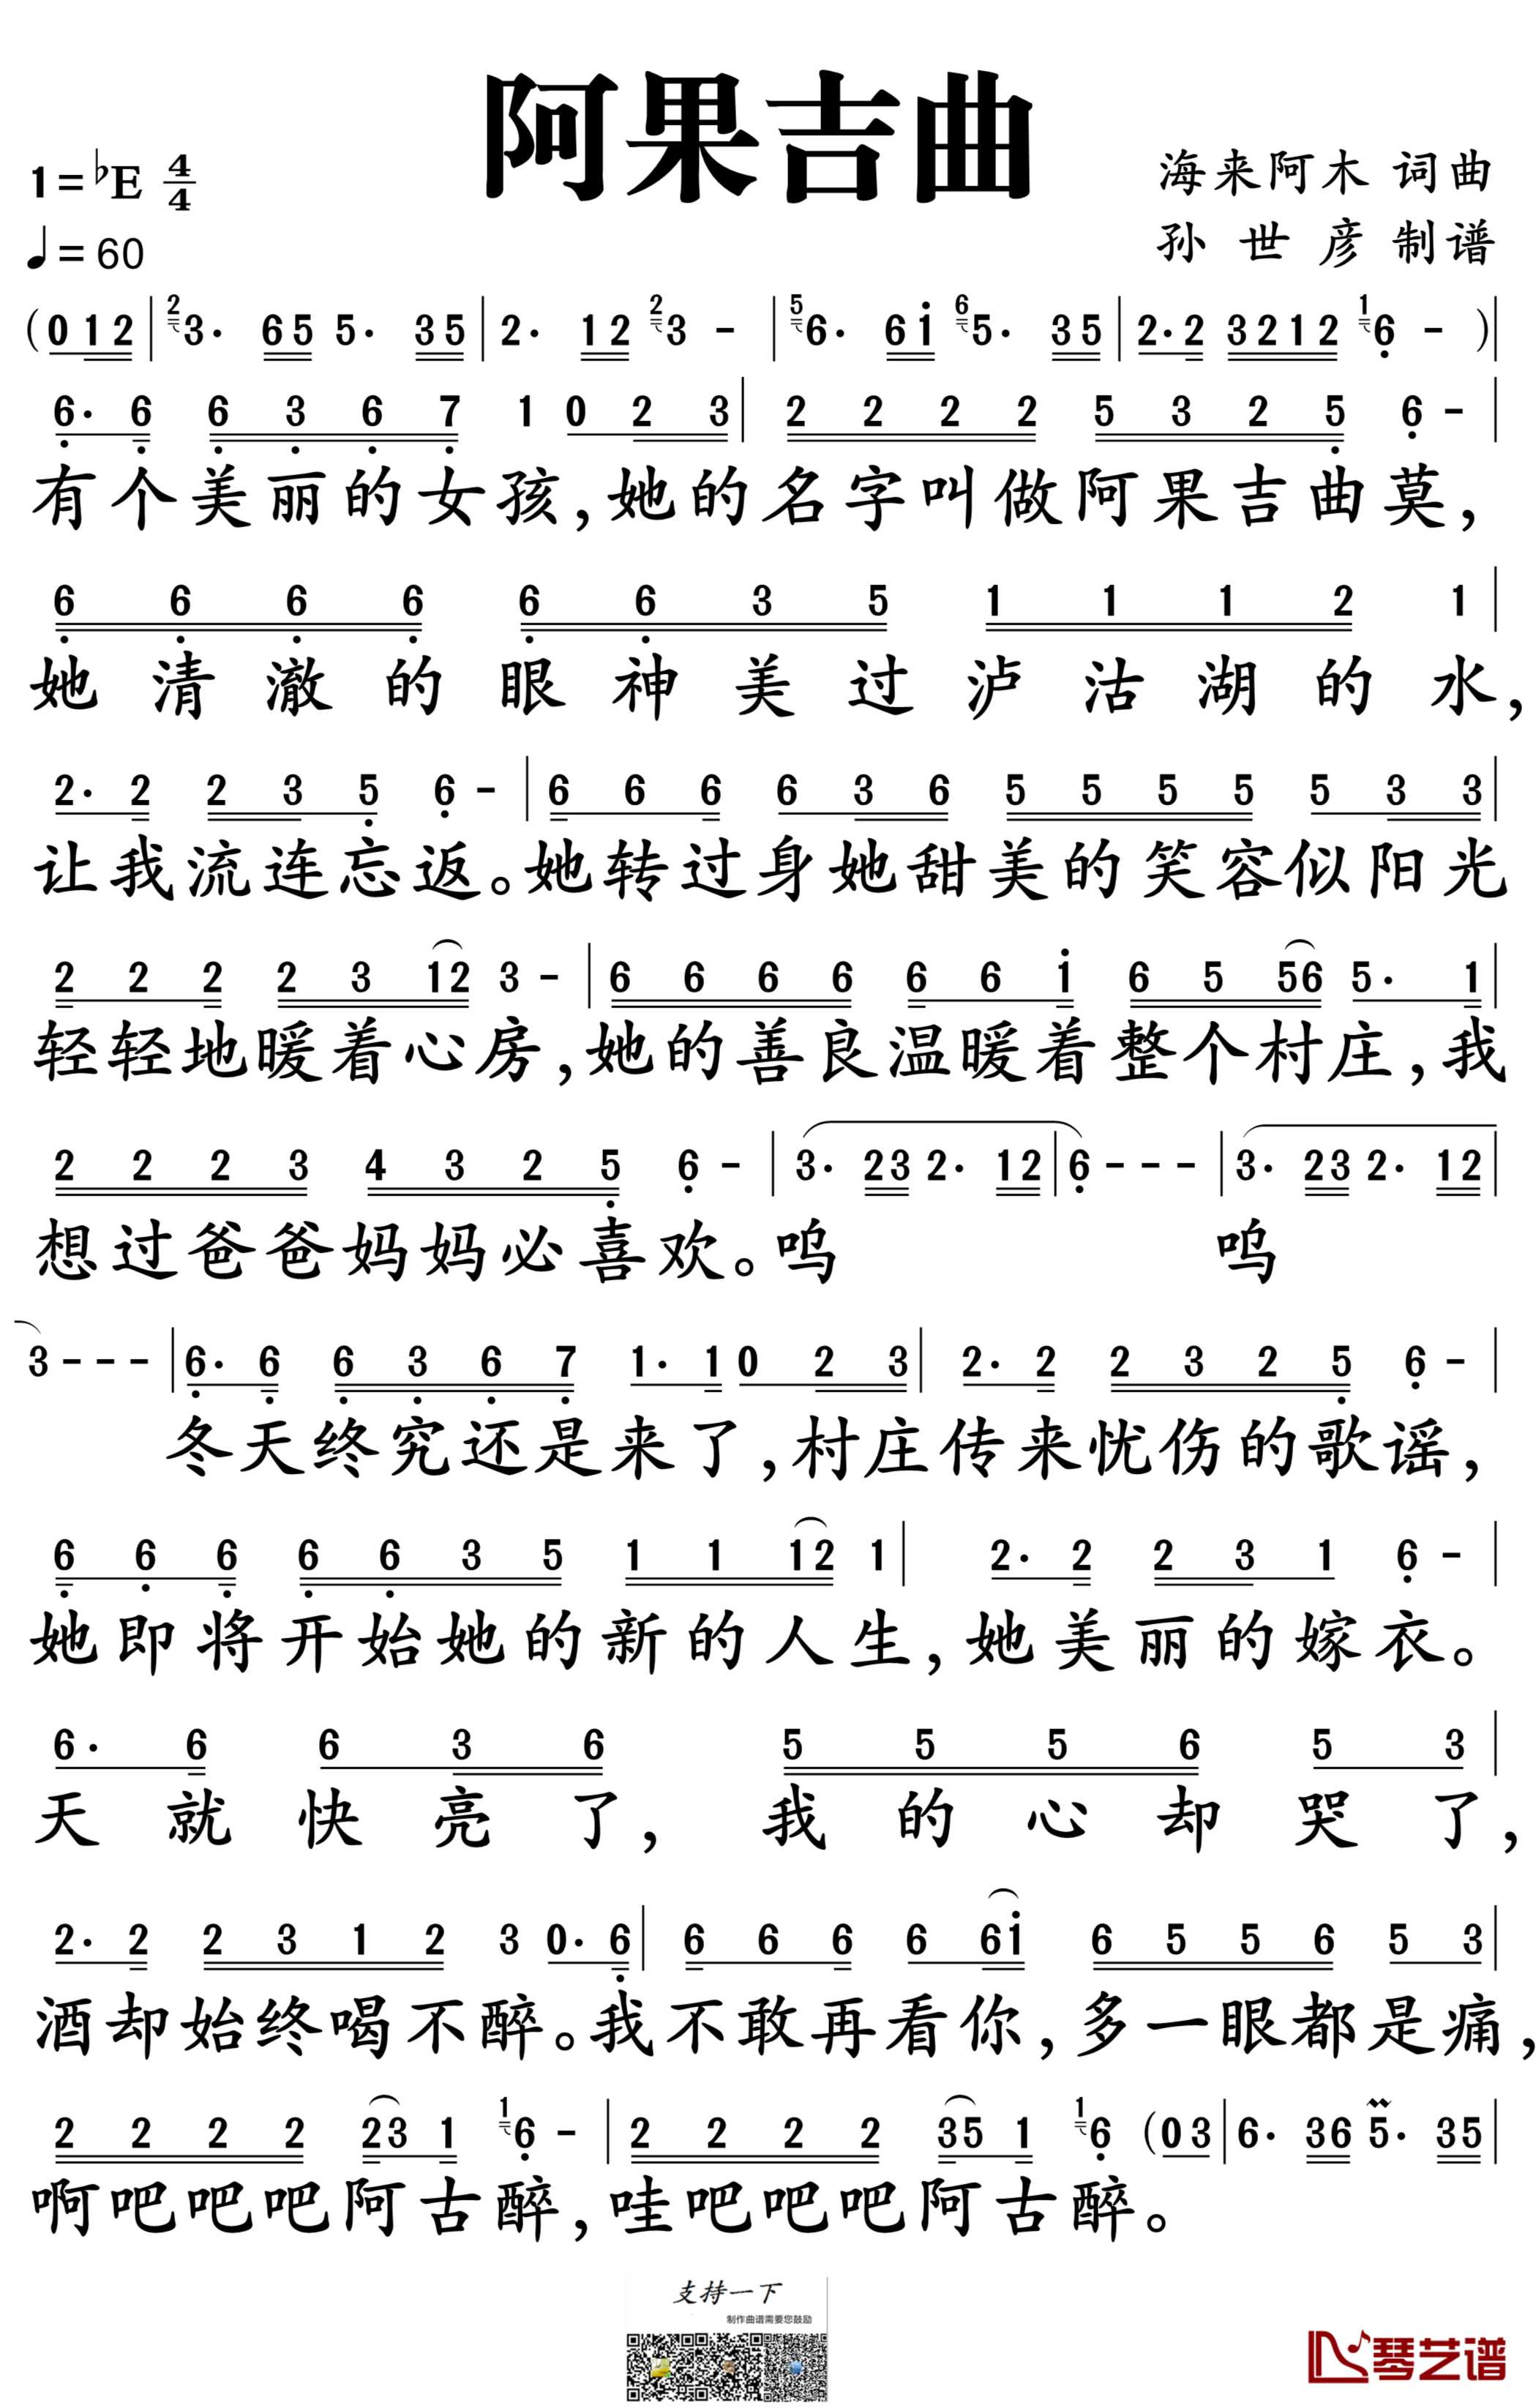 阿果吉曲
1=♭E 4/4
海来阿木 词曲
♩=60
孙世彦 制谱
(0 1 2 | 2 3· 6 5 5· 3 5 | 2· 1 2 2 3 - | 5 6· 6 i 6 5· 3 5 | 2· 2 3 2 1 2 1 6 - )|
6· 6 6 3 6 7 1 0 2 3 | 2 2 2 2 5 3 2 5 6 - |
有个美丽的女孩,她的名字叫做阿果吉曲莫,
6 6 6 6 6 6 3 5 1 1 1 2 1 |
她清澈的眼神美过泸沽湖的水,
2· 2 2 3 5 6 - | 6 6 6 6 3 6 5 5 5 5 5 3 3 |
让我流连忘返。她转过身她甜美的笑容似阳光
2 2 2 2 3 12 3 - | 6 6 6 6 6 6 i 6 5 56 5· 1 |
轻轻地暖着心房,她的善良温暖着整个村庄,我
2 2 2 3 4 3 2 5 6 - | 3· 2 3 2· 1 2 | 6 - - - | 3· 2 3 2· 1 2 |
想过爸爸妈妈必喜欢。呜 呜
3 - - - | 6· 6 6 3 6 7 1· 1 0 2 3 | 2· 2 2 3 2 5 6 - |
冬天终究还是来了,村庄传来忧伤的歌谣,
6 6 6 6 6 3 5 1 1 12 1 | 2· 2 2 3 1 6 - |
她即将开始她的新的人生,她美丽的嫁衣。
6· 6 6 3 6 5 5 5 6 5 3 |
天就快亮了,我的心却哭了,
2· 2 2 3 1 2 3 0· 6 | 6 6 6 6 6i 6 5 5 6 5 3 |
酒却始终喝不醉。我不敢再看你,多一眼都是痛,
2 2 2 2 23 1 1 6 - | 2 2 2 2 35 1 1 6 (0 3 | 6· 3 6 5· 3 5 |
啊吧吧吧阿古醉,哇吧吧吧阿古醉。
支持一下
制作曲谱需要您鼓励
琴艺谱